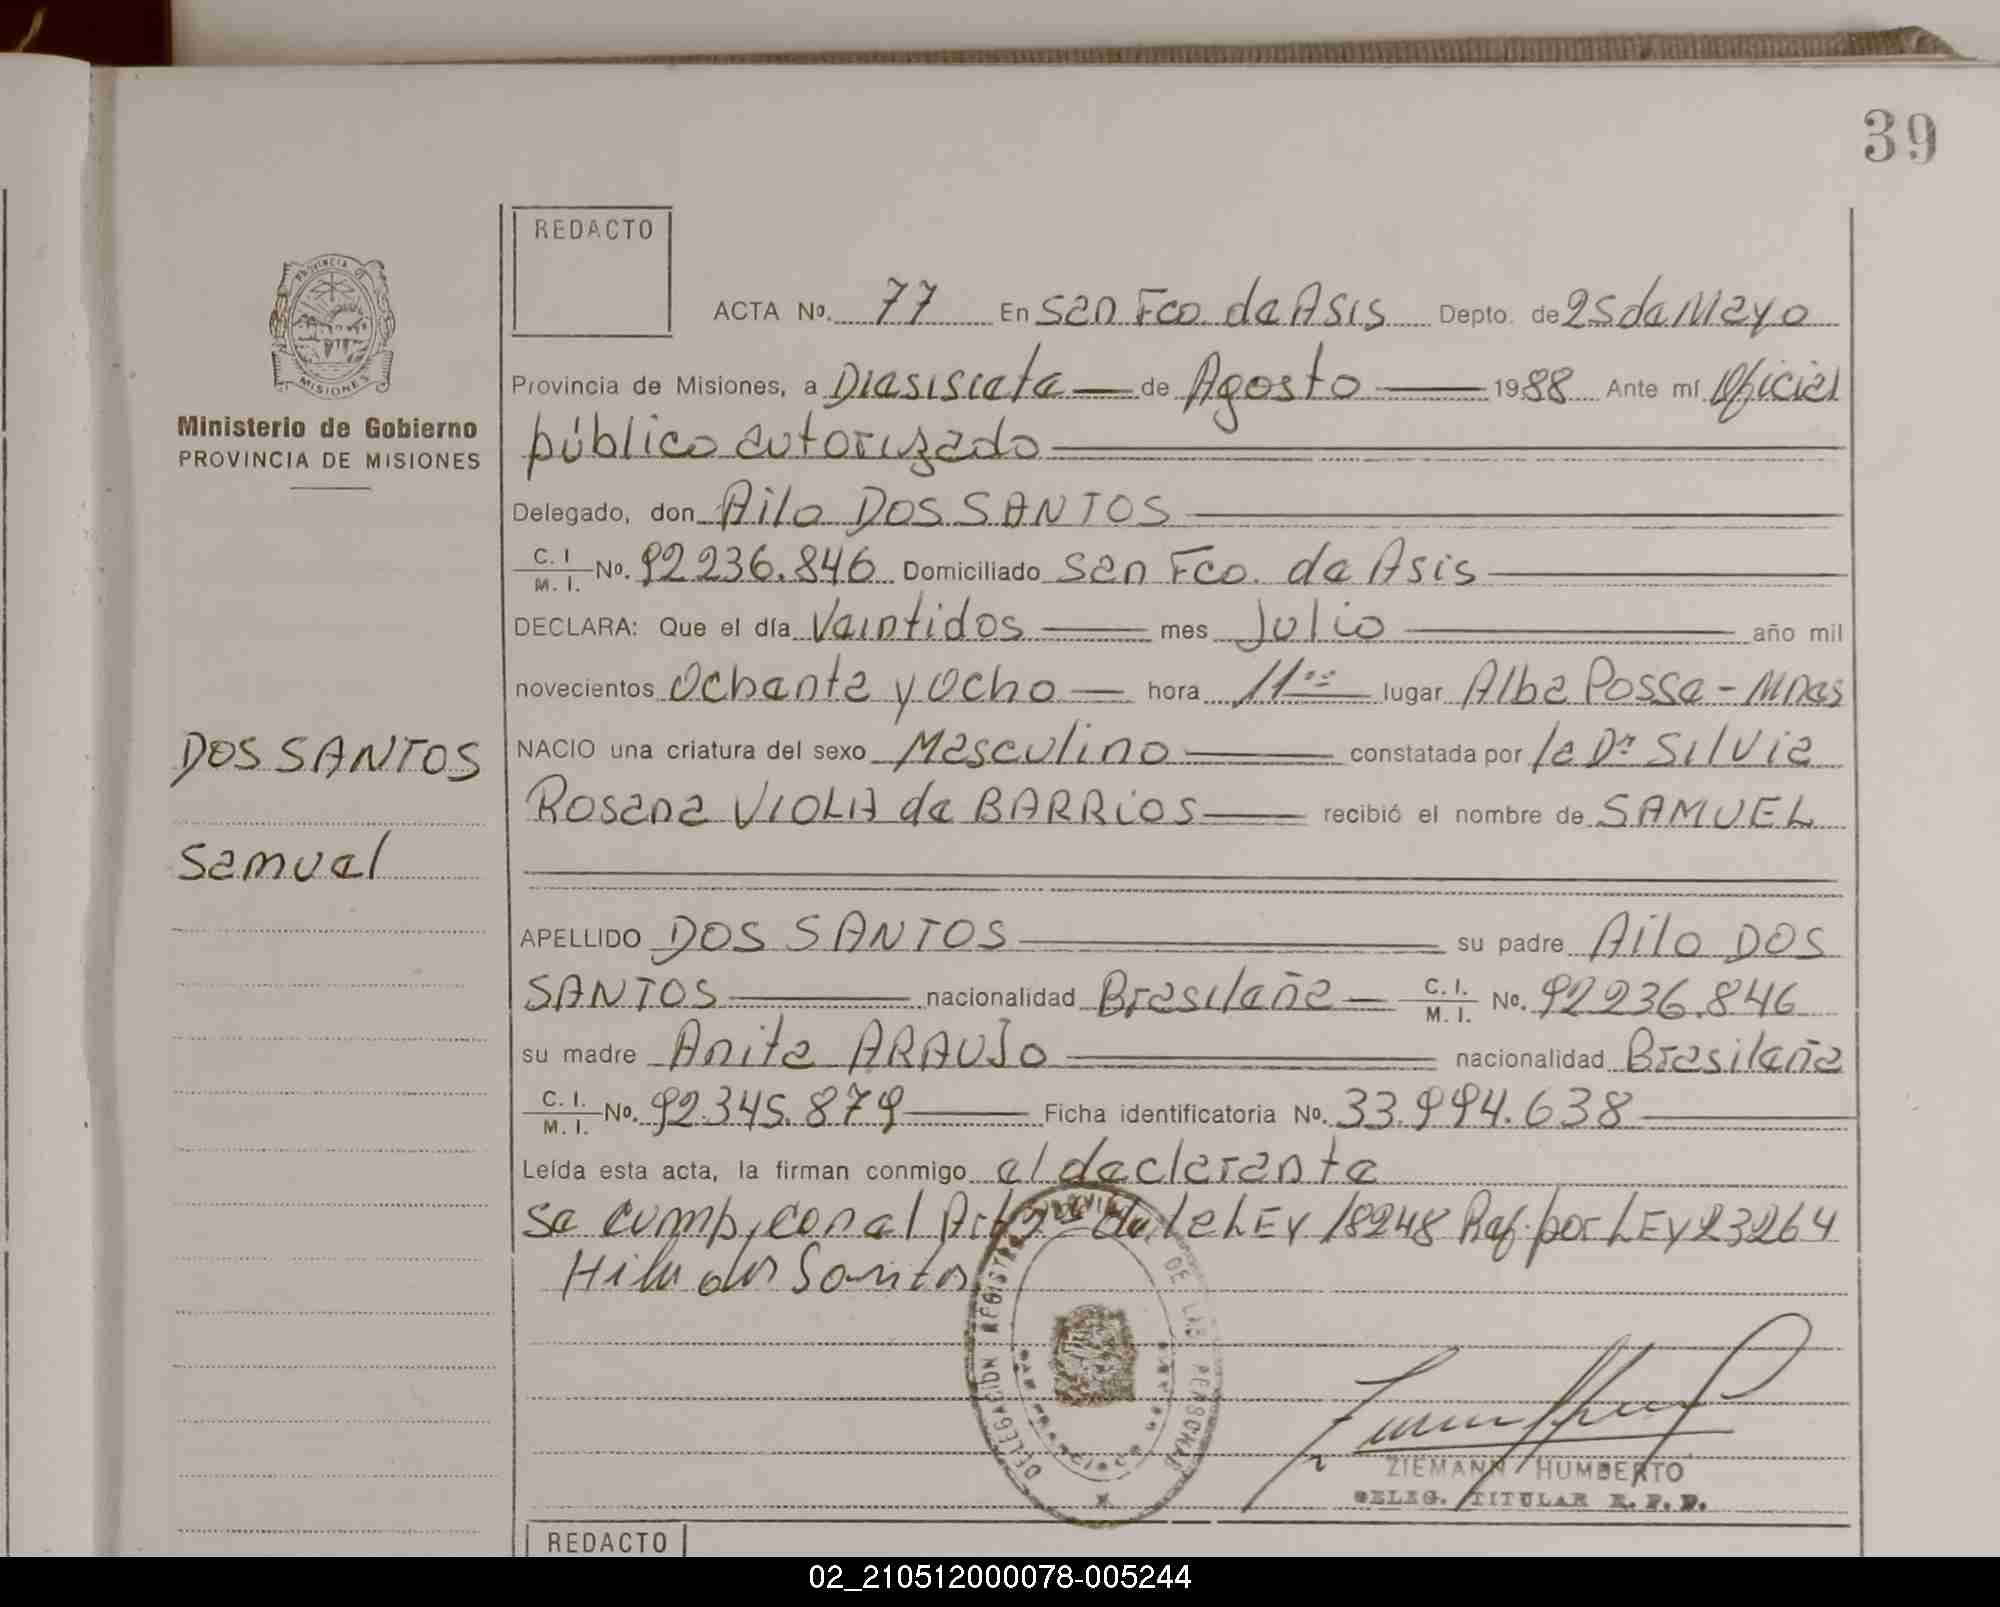 39
REDACTO
PROVINCIA DE
MISIONES
Ministerio de Gobierno
PROVINCIA DE MISIONES
ACTA No. 77 En San Fco. de Asis Depto. de 25 de Mayo
Provincia de Misiones, a Diesisiete — de Agosto — 1988 Ante mí Oficial
público autorizado
Delegado, don Ailo DOS SANTOS
C. I. / M. I. No. 92 236.846 Domiciliado San Fco. de Asis
DECLARA: Que el día Veintidos — mes Julio — año mil
novecientos Ochenta y Ocho — hora 11°° lugar Alba Posse - Mnes
DOS SANTOS
NACIO una criatura del sexo Masculino — constatada por la Dra Silvia
Rosana VIOLA de BARRIOS — recibió el nombre de SAMUEL
Samuel
APELLIDO DOS SANTOS — su padre Ailo DOS
SANTOS — nacionalidad Brasileña — C. I. / M. I. No. 92 236.846
su madre Anita ARAUJO — nacionalidad Brasileña
C. I. / M. I. No. 92.345.879 — Ficha identificatoria No. 33.994.638
Leída esta acta, la firman conmigo el declarante
Se cump, con el de la LEY 18248 Ref. por LEY 23264
dos Santos
DELEGACIÓN REGISTRO PROVINCIAL DE LAS PERSONAS
ZIEMANN HUMBERTO
DELEG. TITULAR R. P. P.
REDACTO
02_210512000078-005244